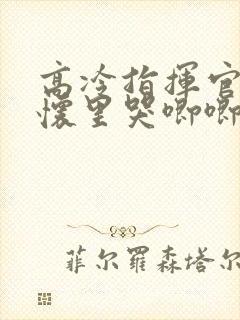 高冷指挥官
怀里哭唧唧
菲尔罗森塔尔